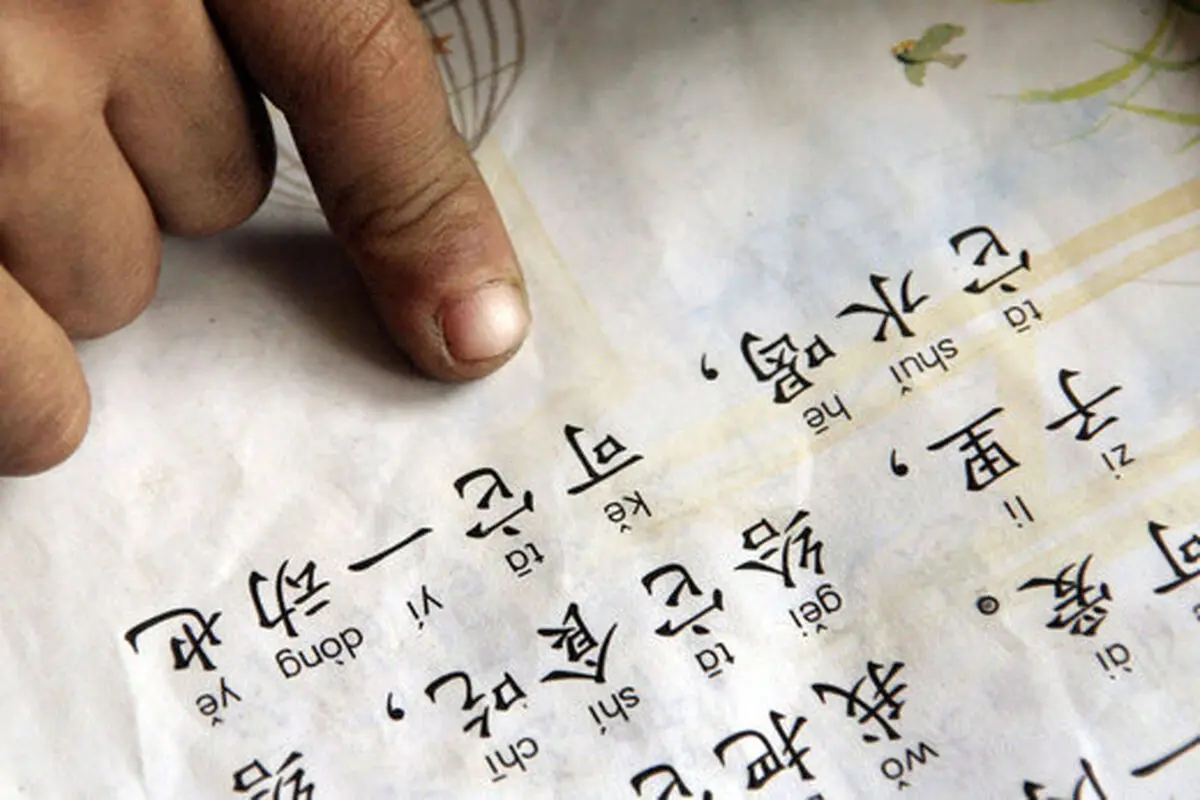 一
ài wǒ
可爱。我把它
zi lǐ gěi tā shí chī
子里，给它食吃，给
tā shuǐ hē kě tā yī dòng yě
它水喝，可它一动也